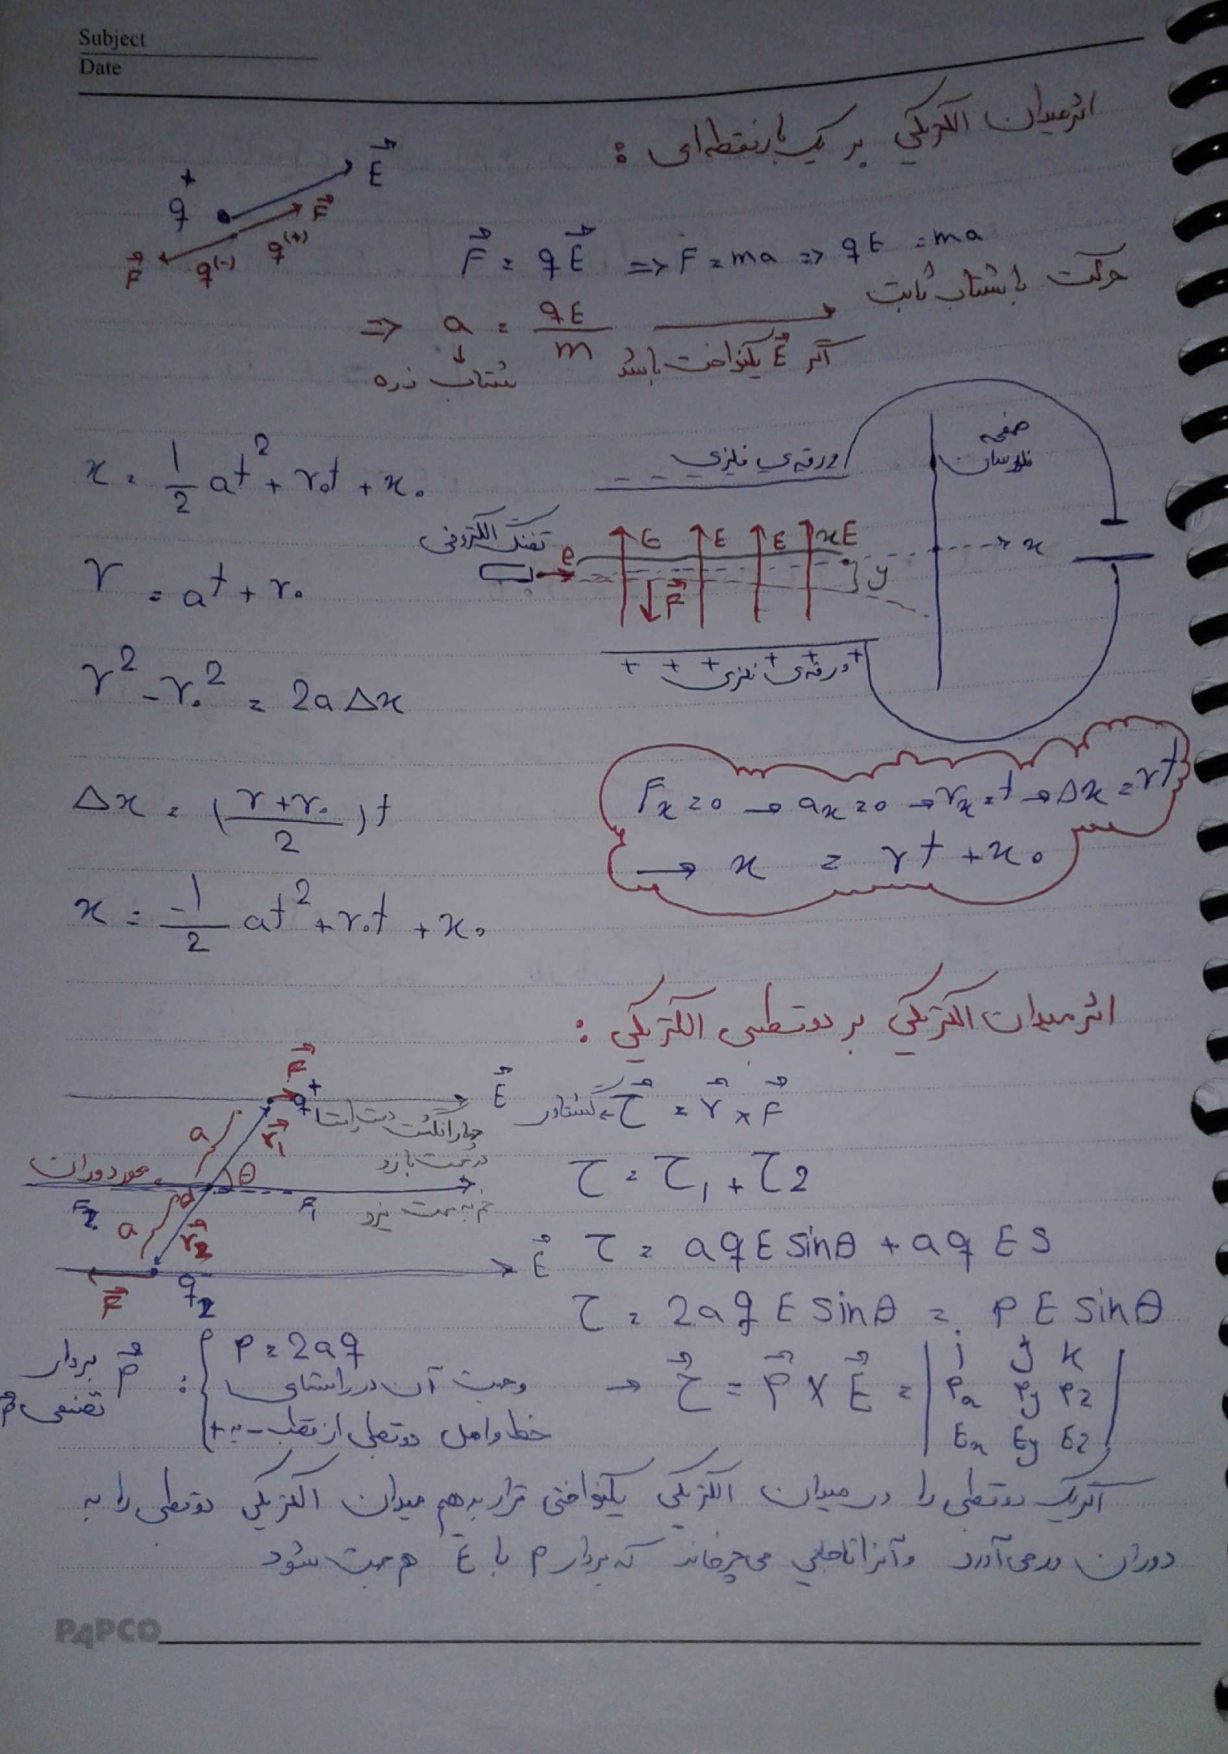 Subject
Date
اثر میدان الکتریکی بر یک بار نقطه‌ای :
q + E
F q(-) q(+) F
F = qE => F = ma => qE = ma
حرکت با شتاب ثابت
=> a = qE/m
اگر E یکنواخت باشد
شتاب ذره
x = 1/2 at² + v₀t + x₀
v = at + v₀
v² - v₀² = 2aΔx
Δx = (v+v₀/2)t
x = -1/2 at² + v₀t + x₀
ورقه‌ی فلزی
صفحه
تفنگ الکترونی
e E E E E x
F y
+ + + + + ورقه‌ی فلزی
Fx = 0 → ax = 0 → vx = t → Δx = vt
→ x = vt + x₀
اثر میدان الکتریکی بر دوقطبی الکتریکی :
F q+ E
گشتاور τ = r × F
چهار انگشت دست راست
در جهت بازو
a r₁
محور دوران θ
F₂ F₁
a d r₂
F q₂ E
τ = τ₁ + τ2
τ = aqE sinθ + aqES
τ = 2aqE sinθ = pE sinθ
بردار P : p = 2aq
وجهت آن در راستای
خط واصل دوقطبی از قطب - به +
→ τ = P × E = | i j k
Px Py Pz
Ex Ey Ez |
اگر یک دوقطبی را در میدان الکتریکی یکنواختی قرار بدهیم میدان الکتریکی دوقطبی را به
دوران درمی‌آورد و آنرا تا جایی می‌چرخاند که بردار p با E هم جهت شود
PAPCO